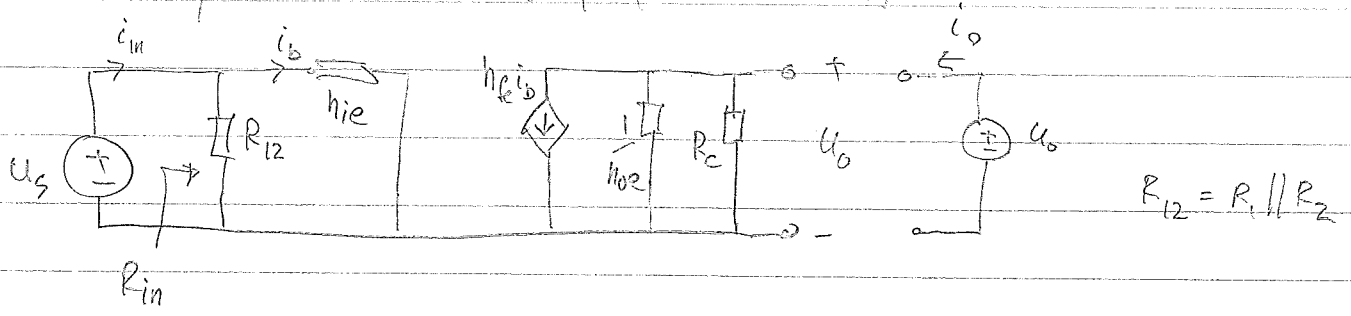 i_in
i_b
h_ie
h_fe i_b
i_o
u_s
R_12
1/h_oe
R_c
+
u_o
-
u_o
R_12 = R_1 || R_2
R_in